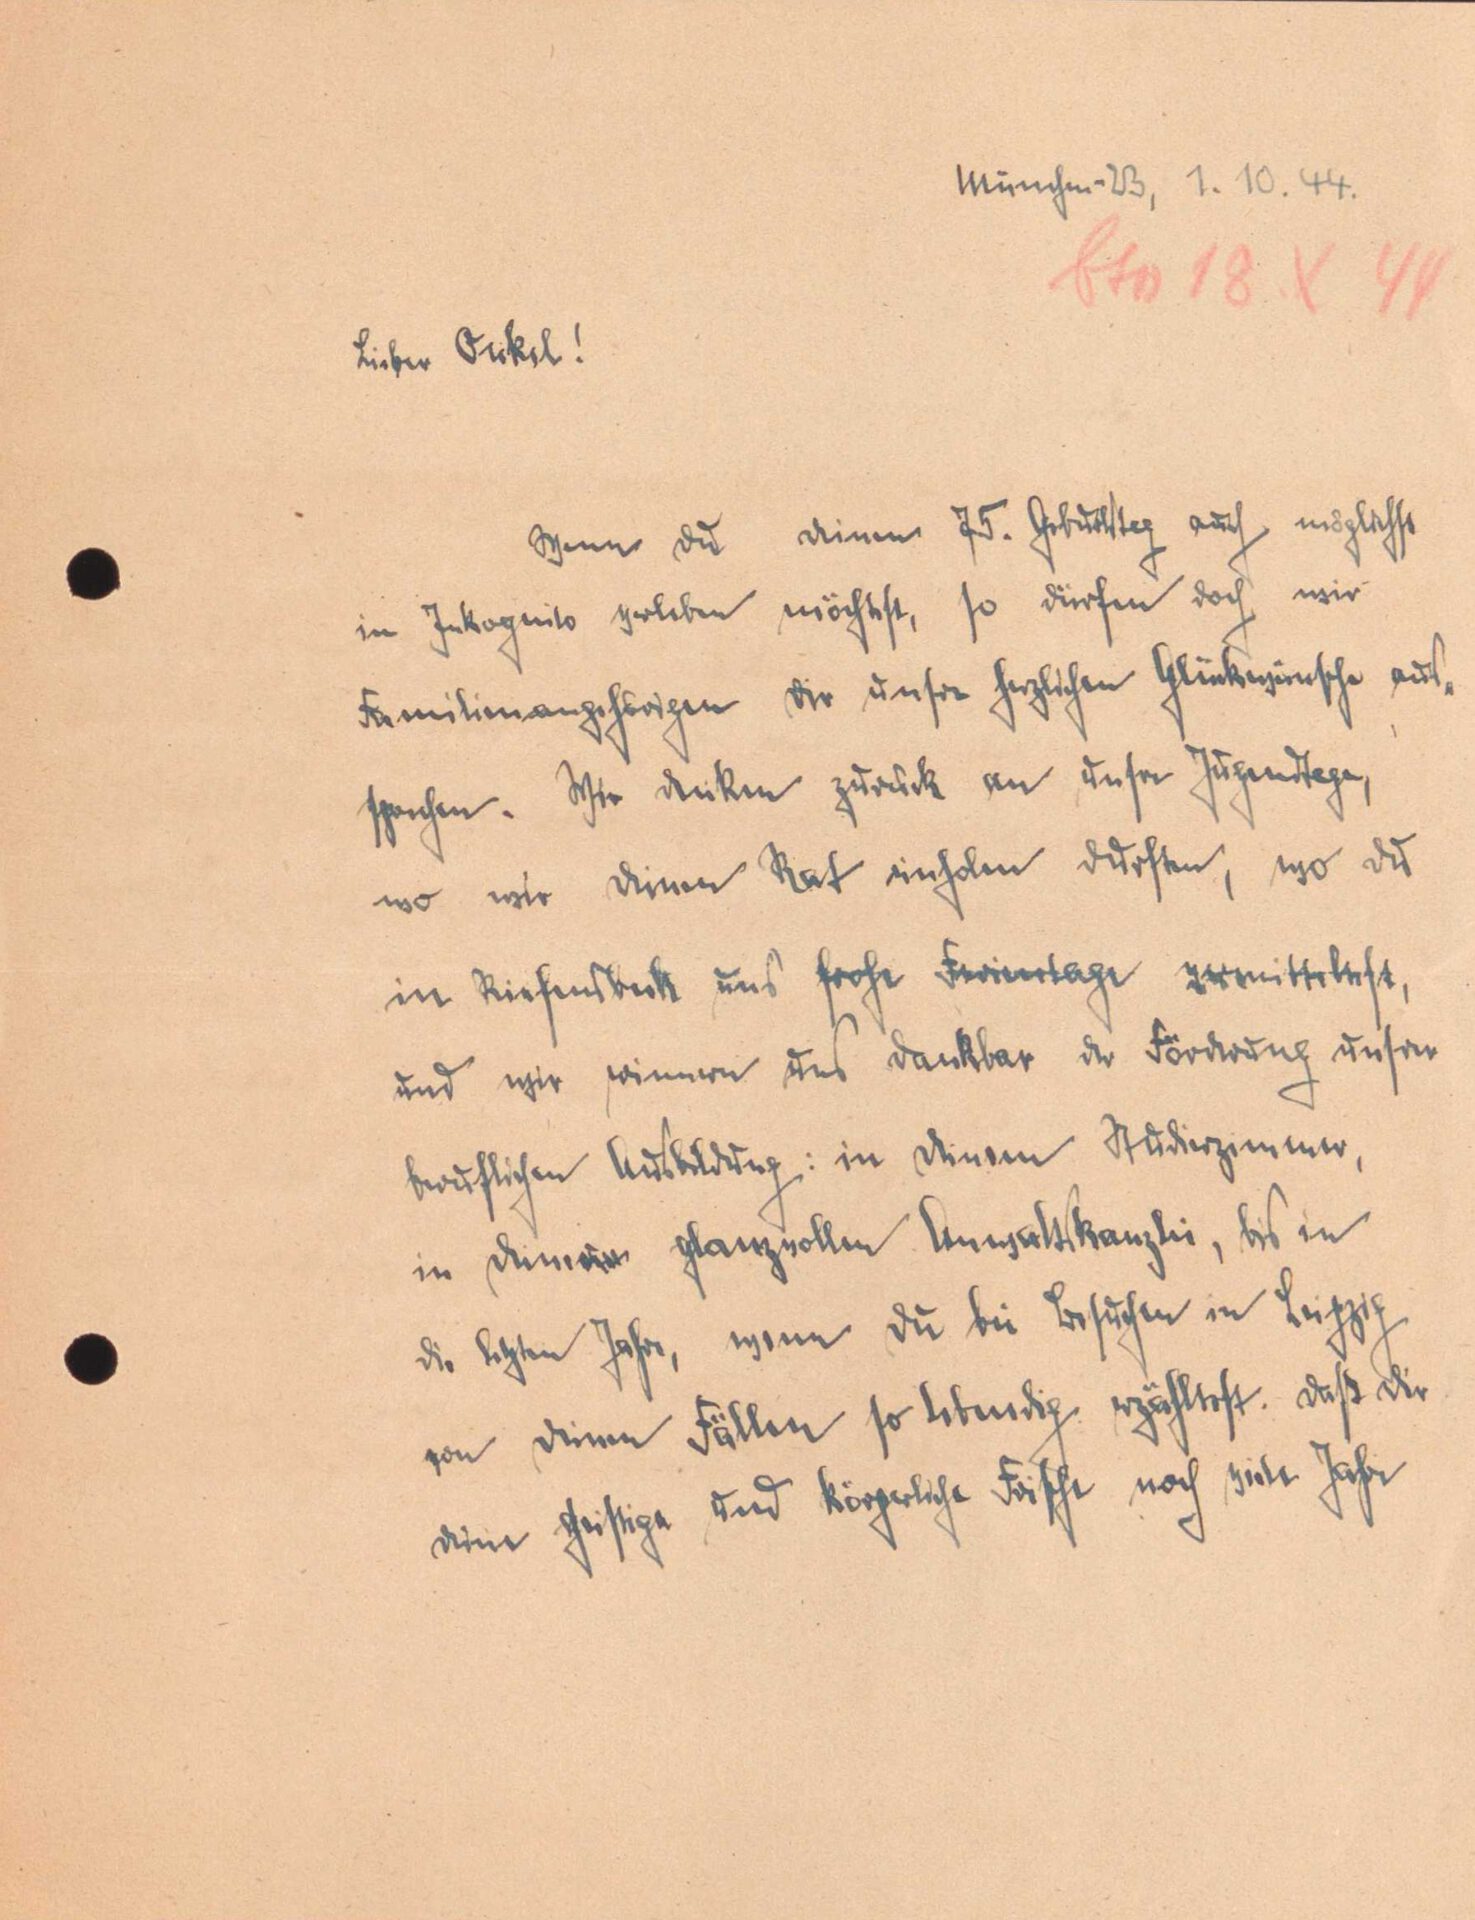 München-23, 1. 10. 44.
18 X 44
Lieber Onkel!
Wenn du deinen 75. Geburtstag auch möglichst
in Inkognito verleben möchtest, so dürfen doch wir
Familienangehörigen dir unsre herzlichen Glückwünsche aus-
sprechen. Wir denken zurück an unsre Jugendtage,
wo wir deinen Rat einholen durften, wo du
in Riefensbeek uns frohe Ferientage vermitteltest,
und wir erinnern uns dankbar der Förderung unsrer
beruflichen Ausbildung: in deinem Studierzimmer,
in deiner glanzvollen Anwaltskanzlei, bis in
die letzten Jahre, wenn du bei Besuchen in Leipzig
von deinen Fällen so lebendig erzähltest. Daß dir
deine geistige und körperliche Frische noch viele Jahre